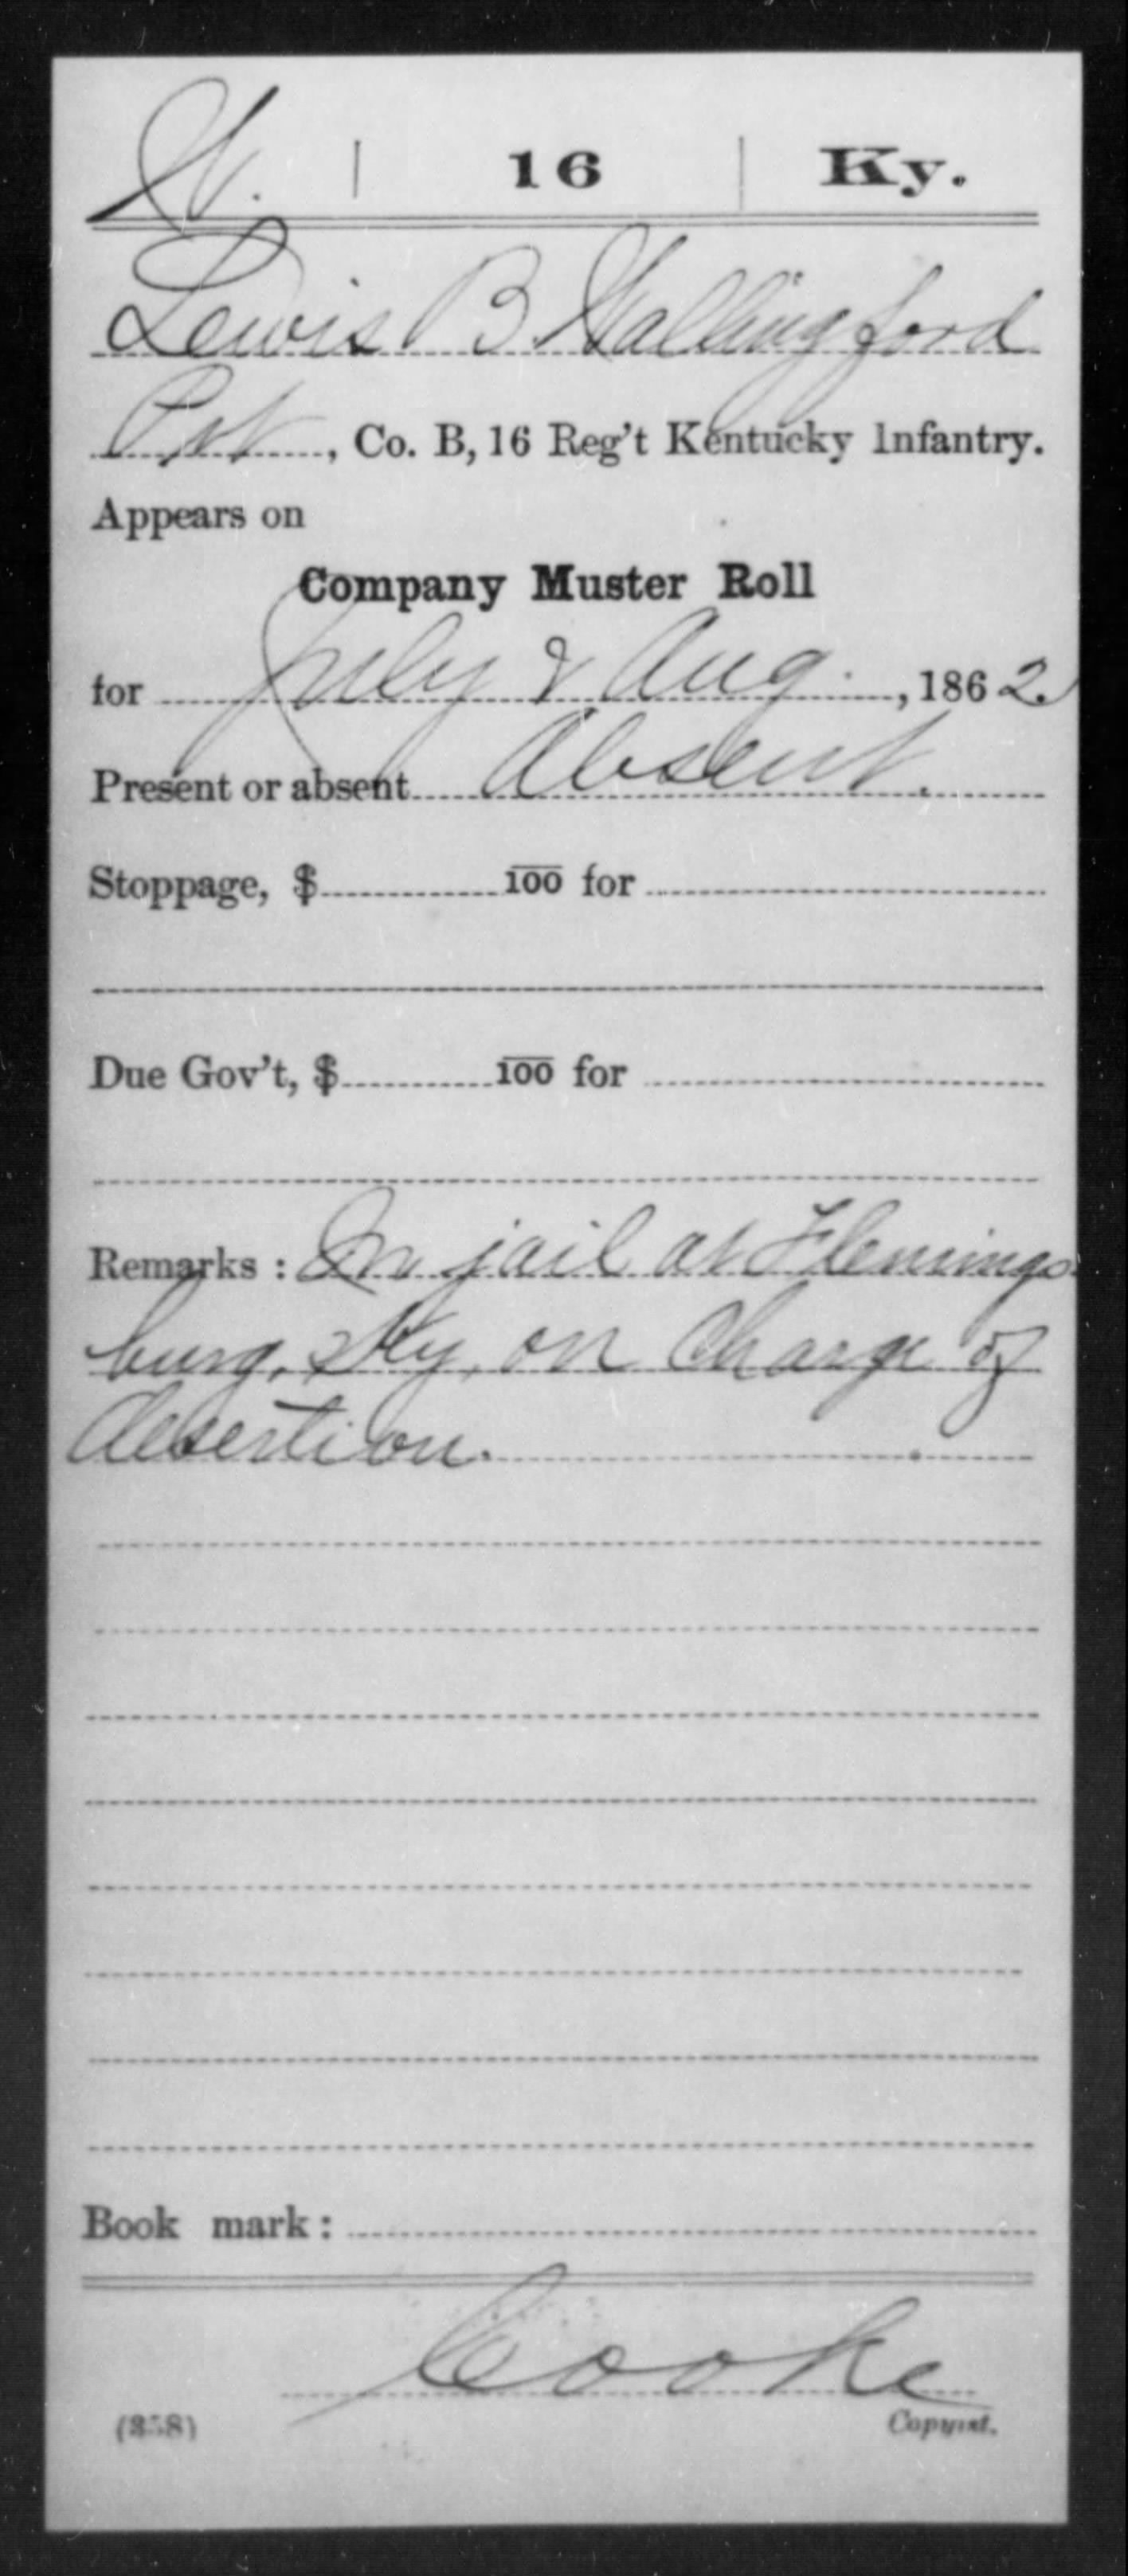 W. | 16 | Ky.
Lewis B Wallingford
Pvt, Co. B, 16 Reg't Kentucky Infantry.
Appears on
Company Muster Roll
for July & Aug., 1862.
Present or absent Absent.
Stoppage, $ 100 for
Due Gov't, $ 100 for
Remarks: In jail at Flemings
burg, Ky, on charge of
desertion.
Book mark:
Cooke
(358) Copyist.